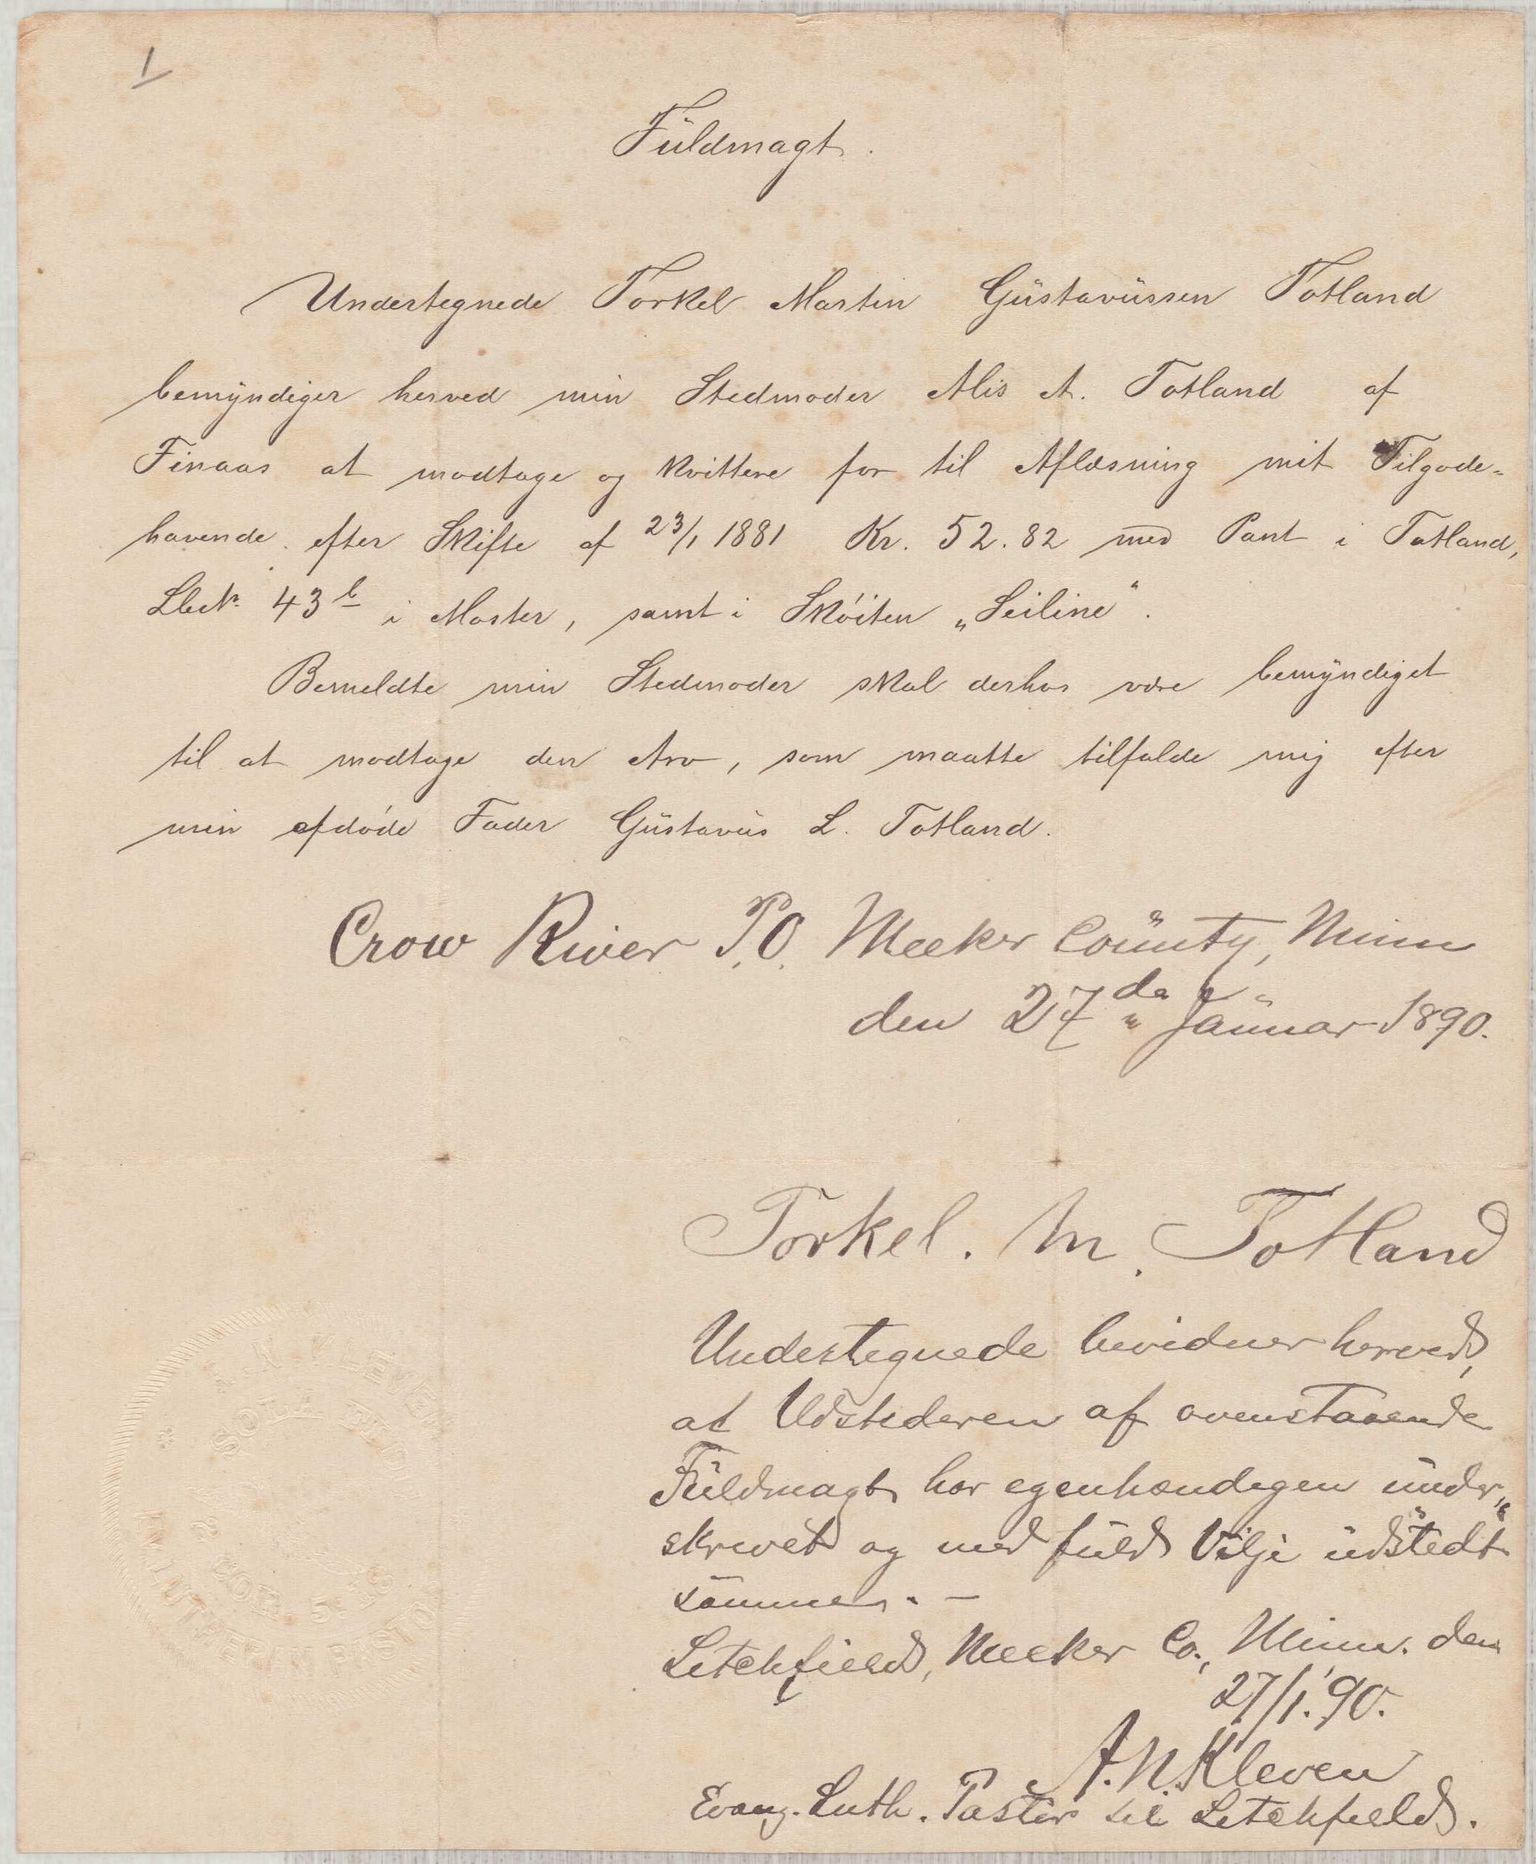 1
Fuldmagt.
Undertegnede Torkel Martin Gustavussen Totland
bemyndiger herved min Stedmoder Alis A. Totland af
Finaas at modtage og kvittere for til Aflæsning mit Tilgode-
havende efter Skifte af 23/1 1881 Kr. 52.82 med Pant i Totland,
43 b i Moster, samt i Skøiten „Seiline“.
Bemeldte min Stedmoder skal derhos være bemyndiget
til at modtage den Arv, som maatte tilfalde mig efter
min afdøde Fader Gustavus L. Totland.
Crow River P.O. Meeker County, Minn
den 27de Januar 1890.
Torkel. M. Totland
Undertegnede bevidner herved,
at Udstederen af ovenstaaende
Fuldmagt har egenhændigen under-
skrevet og med fuld Vilje udstedt
samme. —
Litchfield, Meeker Co., Minn. den
27/1. '90.
A. N. Kleven
Evang. Luth. Pastor til Litchfield.